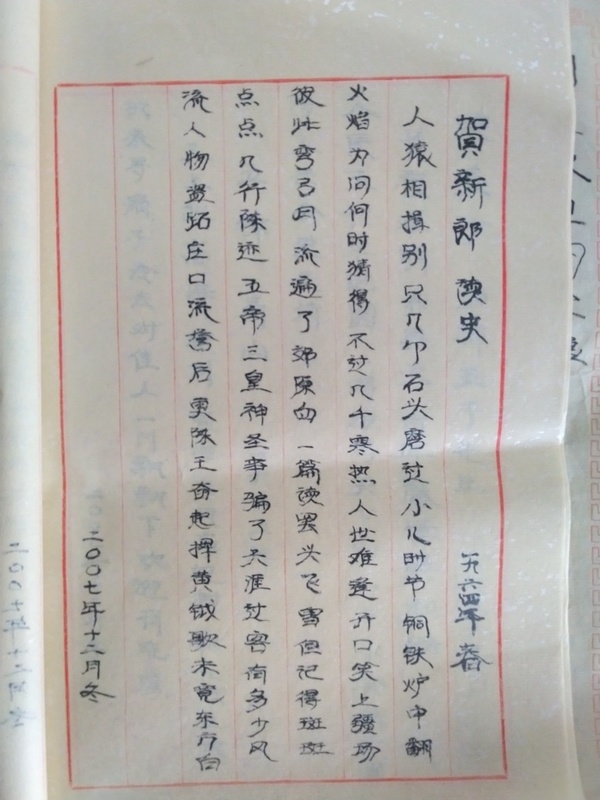 賀新郎 读史 一九六四年春
人猿相揖别只几个石头磨过小儿时节铜铁炉中翻
火焰为问何时猜得不过几千寒热人世难逢开口笑上疆场
彼此弯弓月流遍了郊原血一篇读罢头飞雪但记得斑斑
点点几行陈迹五帝三皇神圣事骗了无涯过客有多少风
流人物盗跖庄口流誉后更陈王奋起挥黄钺歌未竟东方白
二〇〇七年十二月冬
二〇〇七年十二月冬